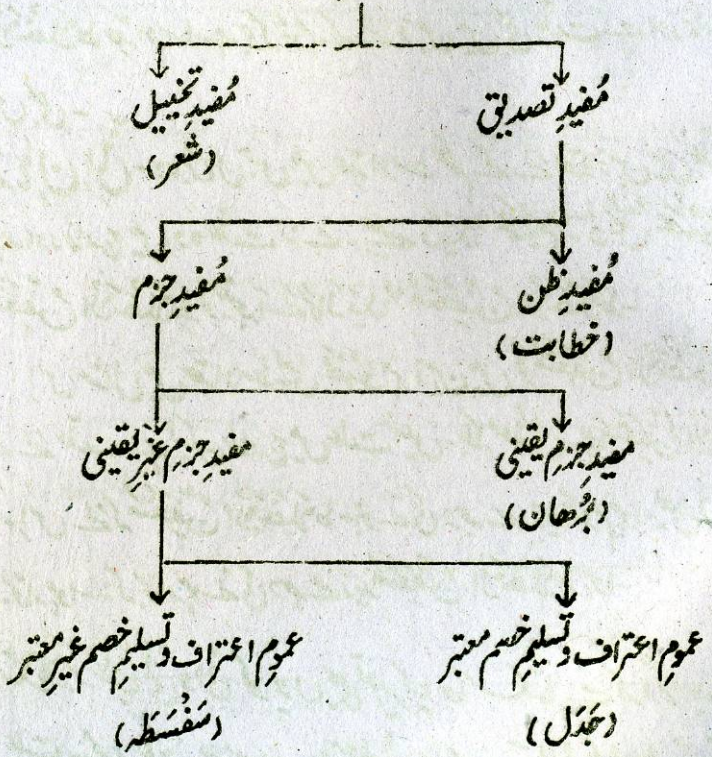 مُفیدِ تصدیق
مُفیدِ تخییل
(شعر)
مُفیدِ ظن
(خطابت)
مُفیدِ جزم
مفیدِ جزمِ یقینی
(بُرھان)
مفیدِ جزمِ غیرِ یقینی
عمومِ اعتراف و تسلیمِ خصم معتبر
(جَدَل)
عمومِ اعتراف و تسلیمِ خصم غیرِ معتبر
(سَفْسَطَہ)